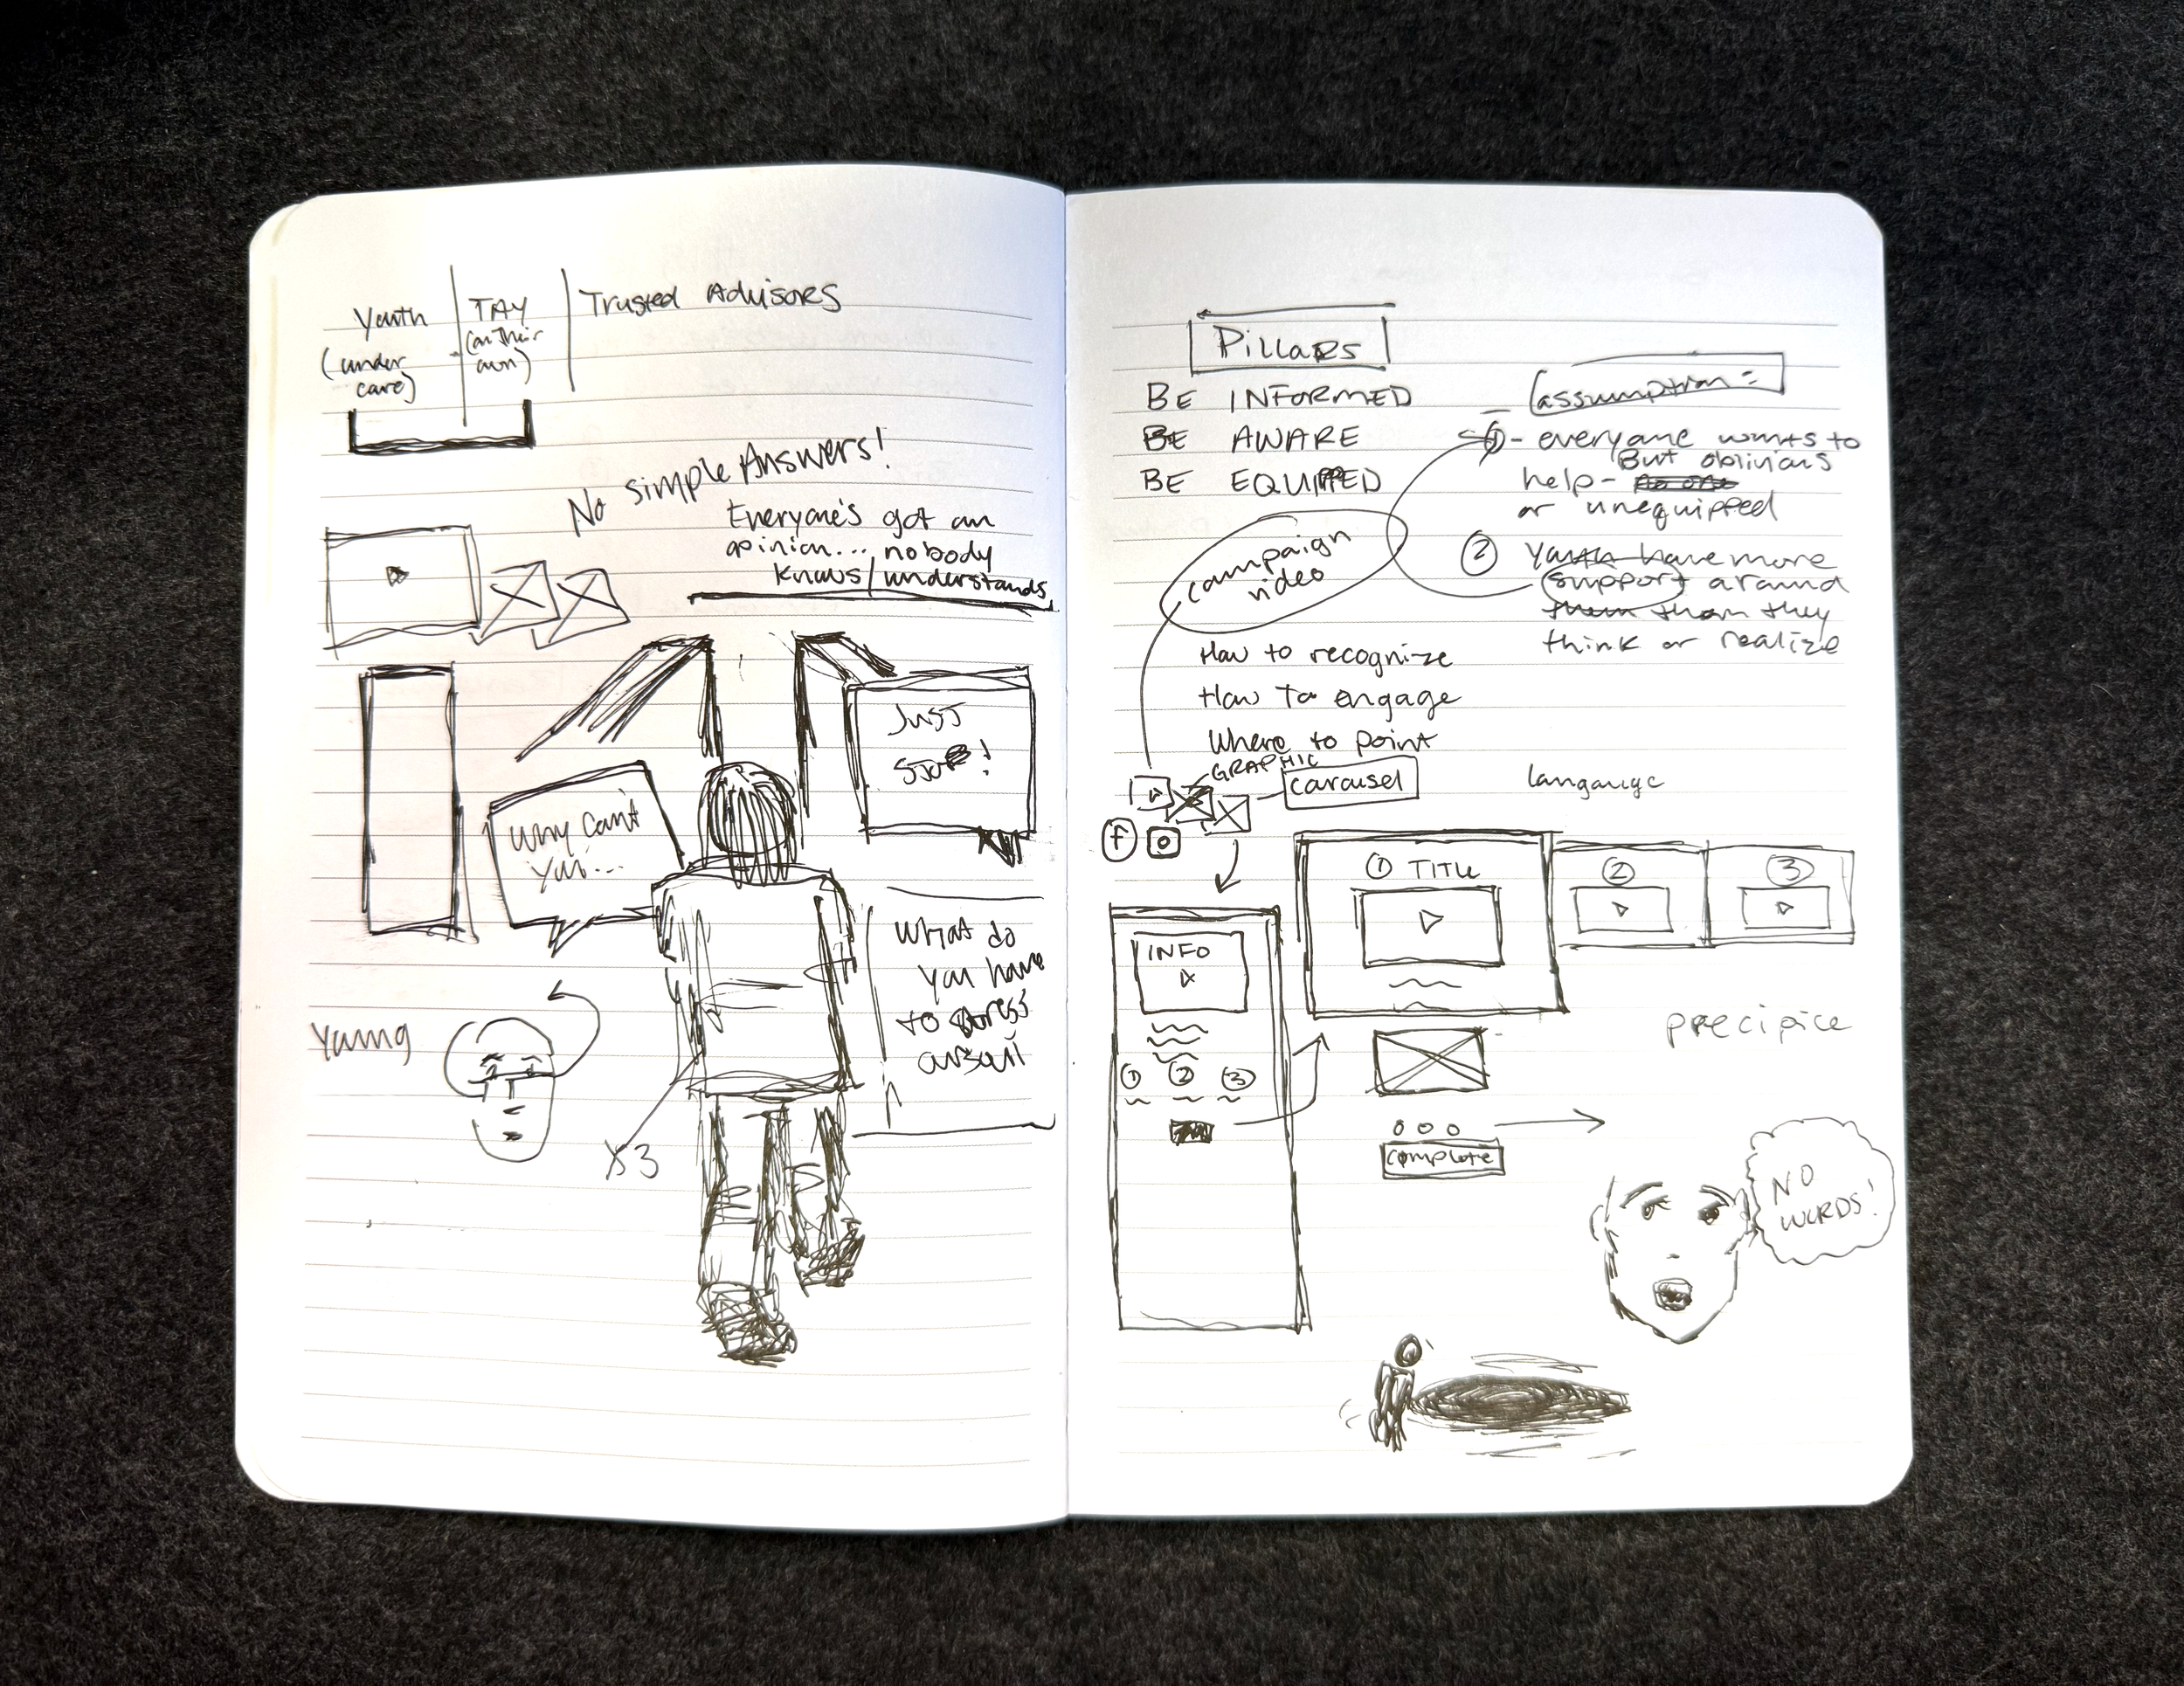 Youth
(under
care)
TAY
(on their
own)
Trusted Advisors
No simple Answers!
Everyone's got an
opinion... nobody
knows/understands
Just
Stop!
Why can't
you...
What do
you have
to stress
about
Young
X3
Pillars
BE INFORMED
BE AWARE
BE EQUIPPED
assumption =
1 - everyone wants to
But oblivious
help - no one
or unequipped
2 Youth have more
support around
them than they
think or realize
campaign
video
How to recognize
How To engage
Where to point
GRAPHIC
carousel
langauge
f
1 TITLE
2
3
INFO
1 2 3
precipice
complete
NO
WORDS!